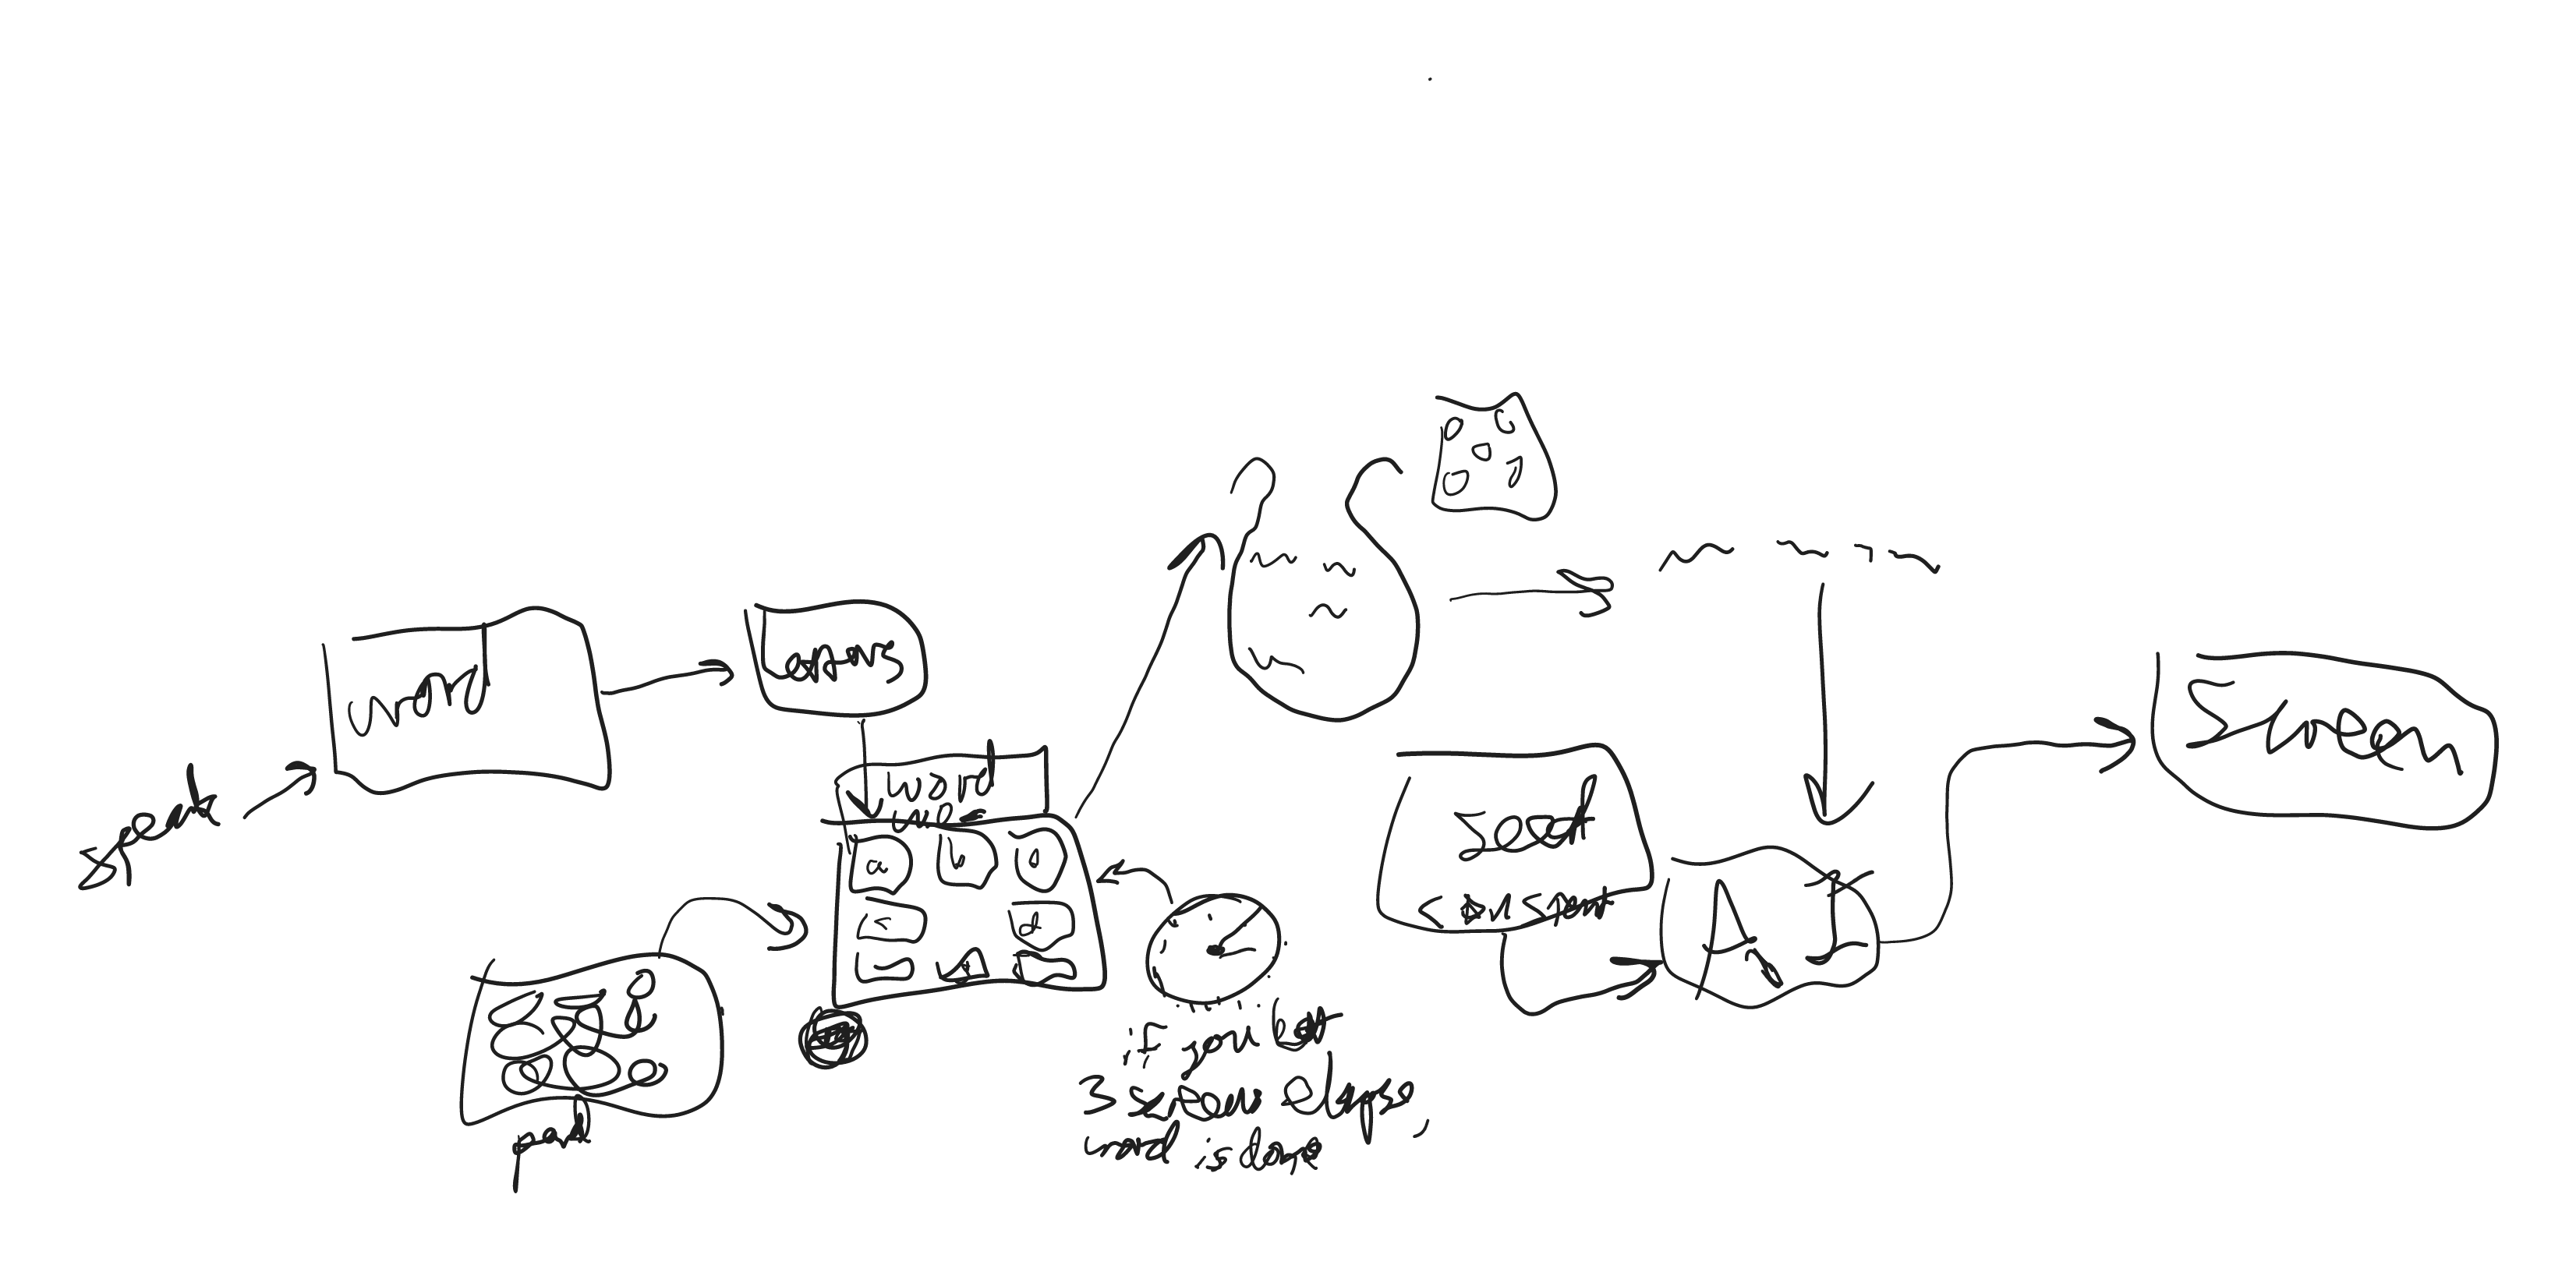 speak
word
Letters
word
a b
c d
pad
if you let
3 seconds elapse,
word is done
seed
constant
AI
Screen